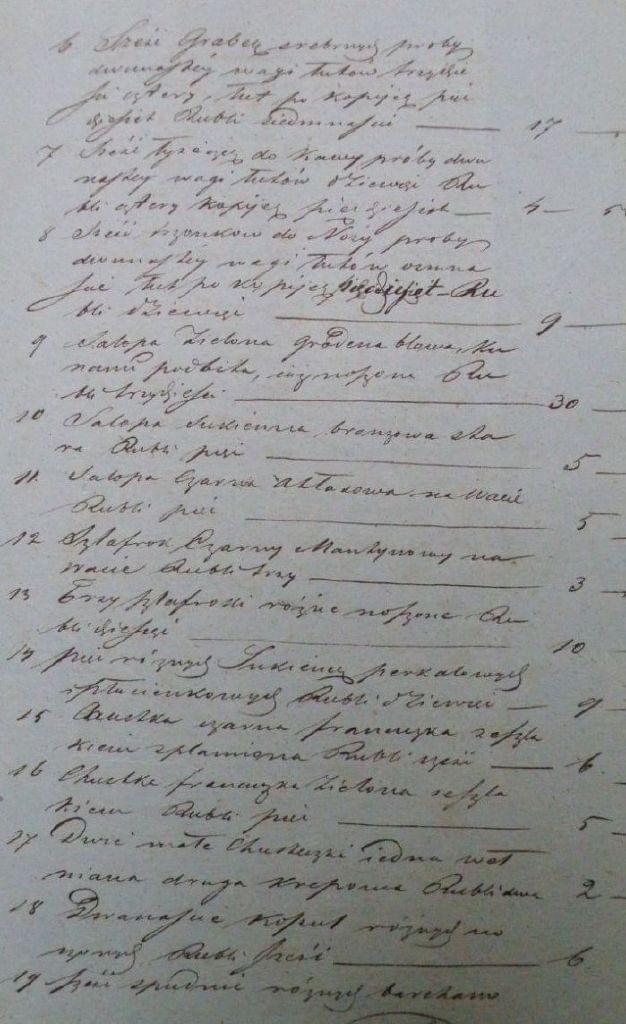 6 Sześć Grabek srebrnych proby
dwunastey wagi łutów trzydzie
ści cztery, łut po kopijek pięć
dziesiąt Rubli siedmnaście — 17 —
7 Sześć łyżeczek do Kawy próby dwu
nastey wagi łutów dziewięć Ru
bli cztery kopijek pięćdziesiąt — 4 — 5
8 Sześć trzonkow do Noży proby
dwunastey wagi łutów ośmna
ście łut po kopijek pięćdziesiąt Ru
bli dziewięć — 9 —
9 Salopa Zielona
podbita, noszona Ru
bli trzydzieści — 30 —
10 Salopa Sukienna bronzowa sta
ra Rubli pięć — 5 —
11 Salopa Czarna Atłasowa na wacie
Rubli pięć — 5
12 Szlafrok Czarny Mantynowy na
wacie Rubli trzy — 3 —
13 Trzy szlafroki różne noszone Ru
bli dziesięć — 10 —
14 pięć różnych Sukienek perkalowych
i płócienkowych Rubli dziewięć — 9 —
15 Chustka czarna francuzka ze szla
kiem splamiona Rubli sześć — 6
16 Chustka francuzka Zielona ze szla
kiem Rubli pięć — 5 —
17 Dwie małe Chusteczki jedna weł
niana druga krepowa Rubli dwie 2 —
18 Dwanaście Koszul różnych no
szonych Rubli sześć — 6 —
19 sześć spodnic różnych barchano